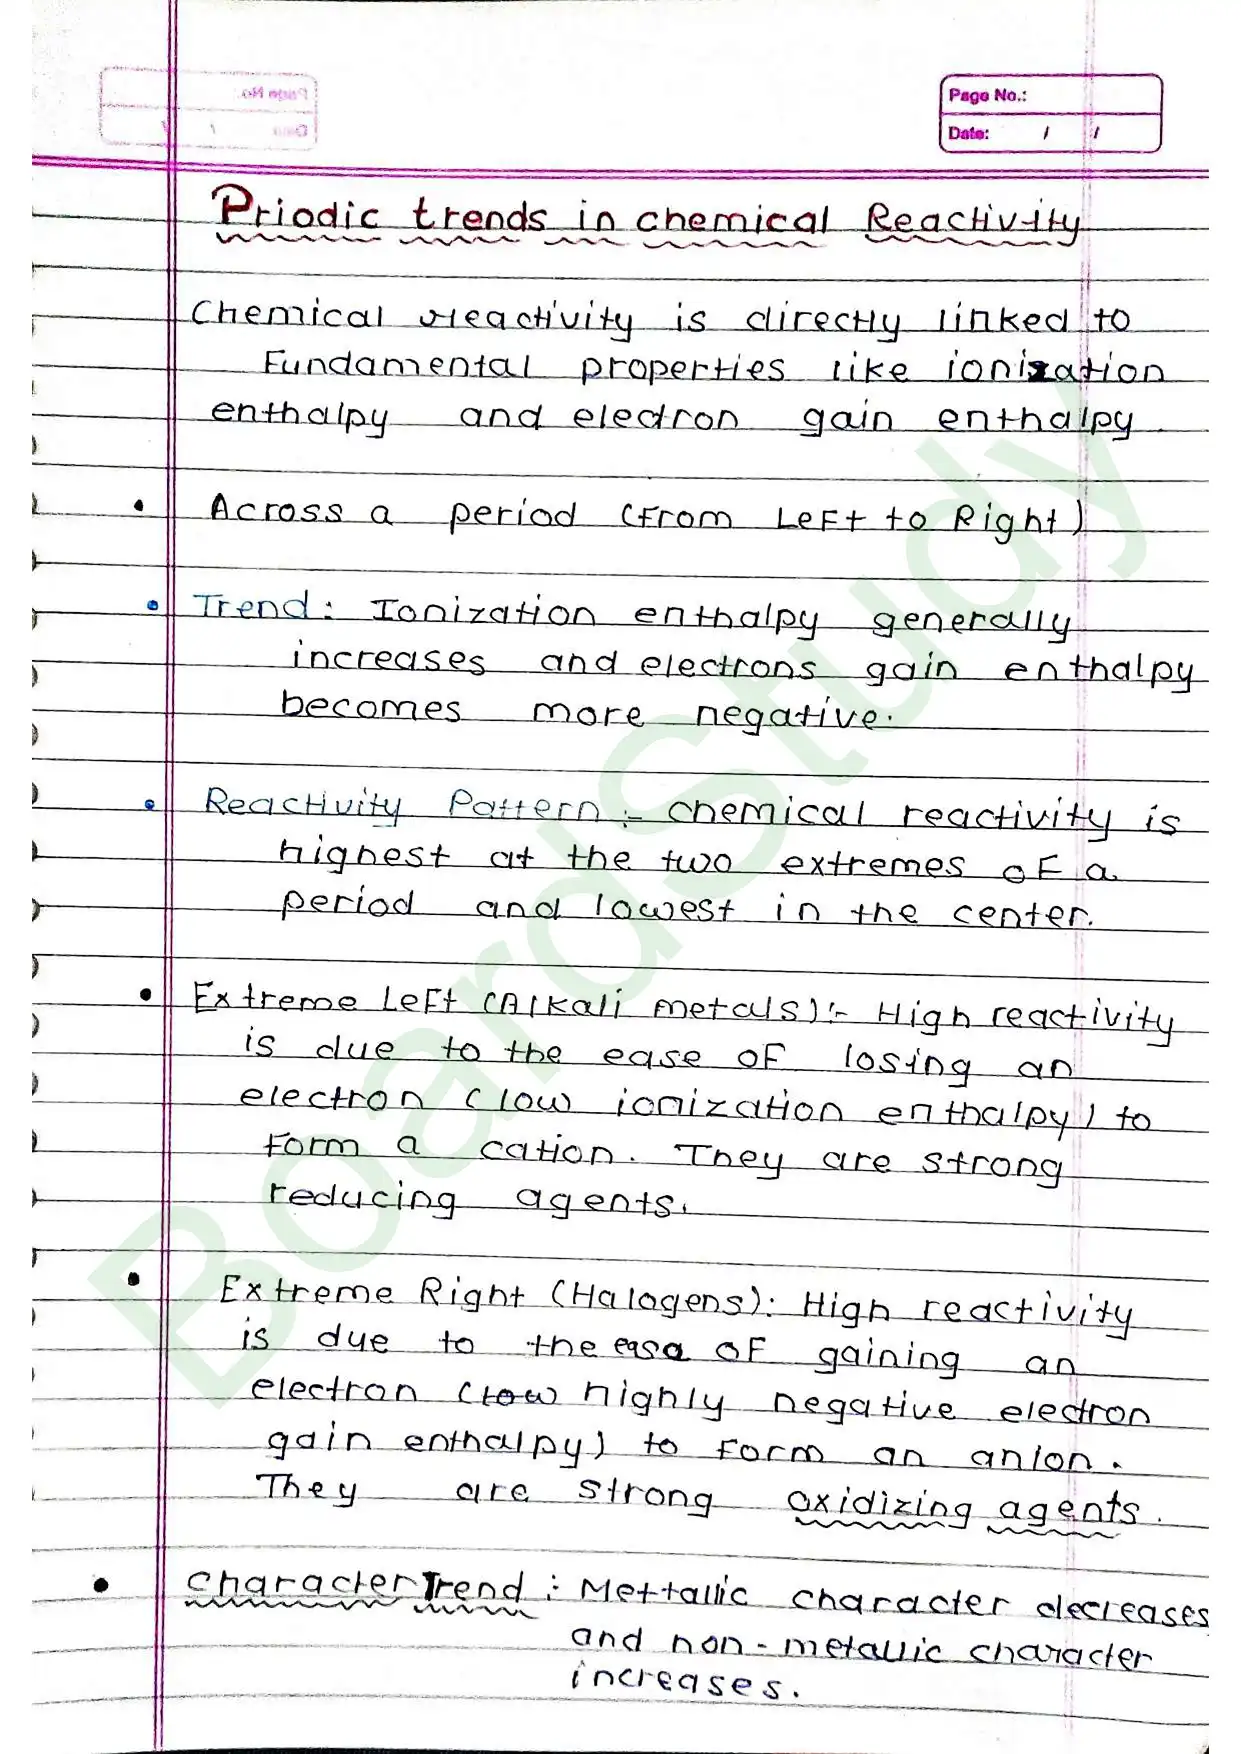 Page No.:
Date: / /
Priodic trends in chemical Reactivity
Chemical reactivity is directly linked to
Fundamental properties like ionization
enthalpy and electron gain enthalpy.
• Across a period (From Left to Right)
• Trend: Ionization enthalpy generally
increases and electrons gain enthalpy
becomes more negative.
• Reactivity Pattern :- chemical reactivity is
highest at the two extremes of a
period and lowest in the center.
• Extreme Left (Alkali metals):- High reactivity
is due to the ease of losing an
electron (low ionization enthalpy) to
Form a cation. They are strong
reducing agents.
• Extreme Right (Halogens): High reactivity
is due to the ease of gaining an
electron (low highly negative electron
gain enthalpy) to Form an anion.
They are strong oxidizing agents.
• character Trend : Mettallic character decreases
and non-metallic character
increases.
BoardStudy